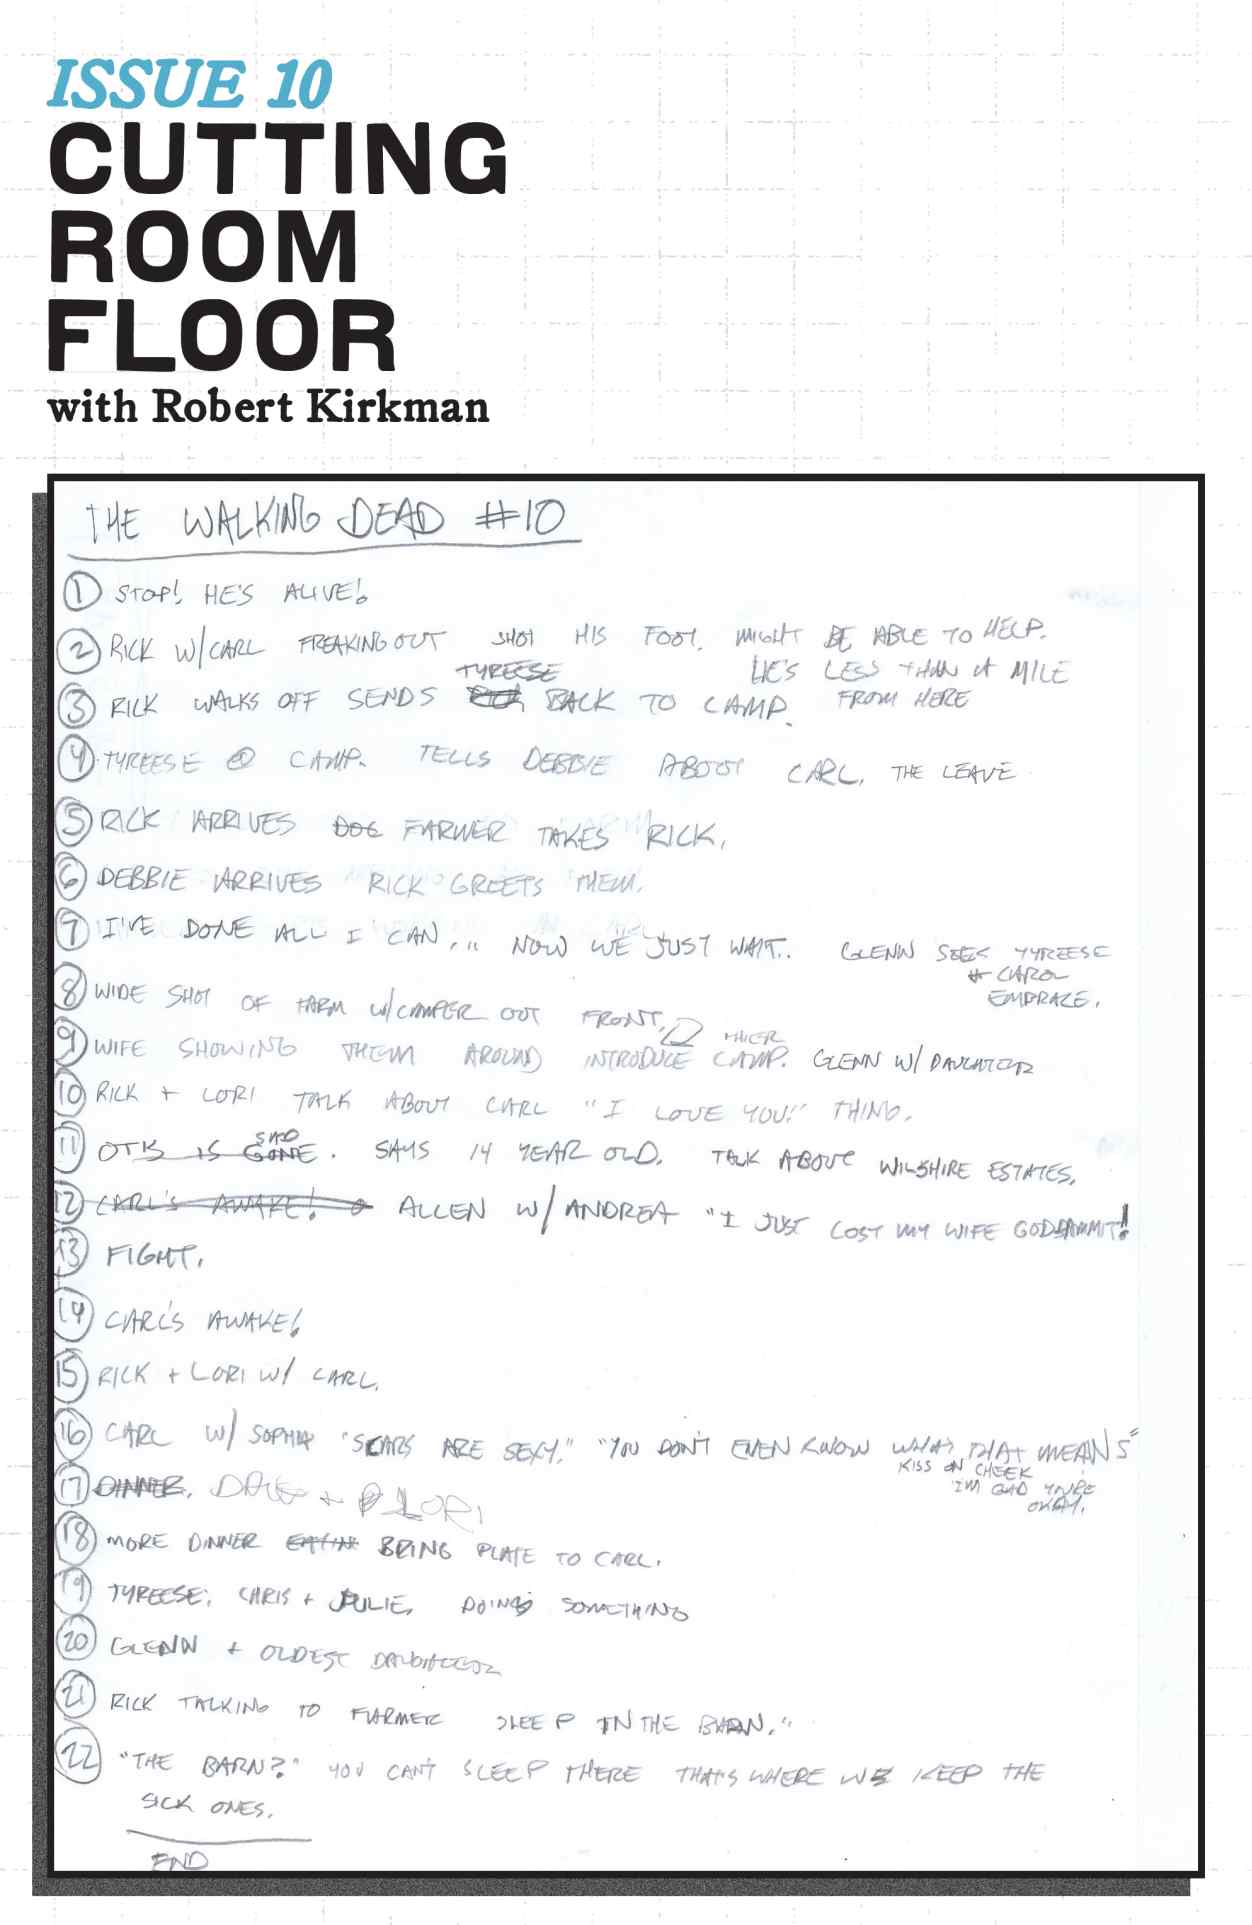 ISSUE 10
CUTTING
ROOM
FLOOR
with Robert Kirkman
THE WALKING DEAD #10
1 STOP! HE'S ALIVE!
2 RICK W/CARL FREAKING OUT SHOT HIS FOOT. MIGHT BE ABLE TO HELP.
HE'S LESS THAN A MILE
FROM HERE
3 RICK WALKS OFF SENDS TYREESE BACK TO CAMP.
4 TYREESE @ CAMP. TELLS DEBBIE ABOUT CARL, THE LEAVE
5 RICK ARRIVES DOC FARMER TAKES RICK.
6 DEBBIE ARRIVES RICK GREETS THEM.
7 I'VE DONE ALL I CAN... NOW WE JUST WAIT.. GLENN SEES TYREESE
+ CAROL
EMBRACE.
8 WIDE SHOT OF FARM W/CAMPER OUT FRONT.
9 WIFE SHOWING THEM AROUND INTRODUCE CAMP. GLENN W/ DAUGHTER
10 RICK + LORI TALK ABOUT CARL "I LOVE YOU!" THING.
11 OTIS IS GONE SAD. SAYS 14 YEAR OLD. TALK ABOUT WILSHIRE ESTATES.
12 CARL'S AWAKE! ALLEN W/ ANDREA "I JUST LOST MY WIFE GODDAMMIT!
13 FIGHT.
14 CARL'S AWAKE!
15 RICK + LORI W/ CARL.
16 CARL W/ SOPHIA "SCARS ARE SEXY." "YOU DON'T EVEN KNOW WHAT THAT MEANS"
KISS ON CHEEK
"I'M GLAD YOU'RE
OKAY.
17 DINNER. DALE + LORI
18 MORE DINNER EATIN BRING PLATE TO CARL.
19 TYREESE, CHRIS + JULIE, DOING SOMETHING
20 GLENN + OLDEST DAUGHTER
21 RICK TALKING TO FARMER SLEEP IN THE BARN."
22 "THE BARN?" YOU CAN'T SLEEP THERE THAT'S WHERE WE KEEP THE
SICK ONES.
END